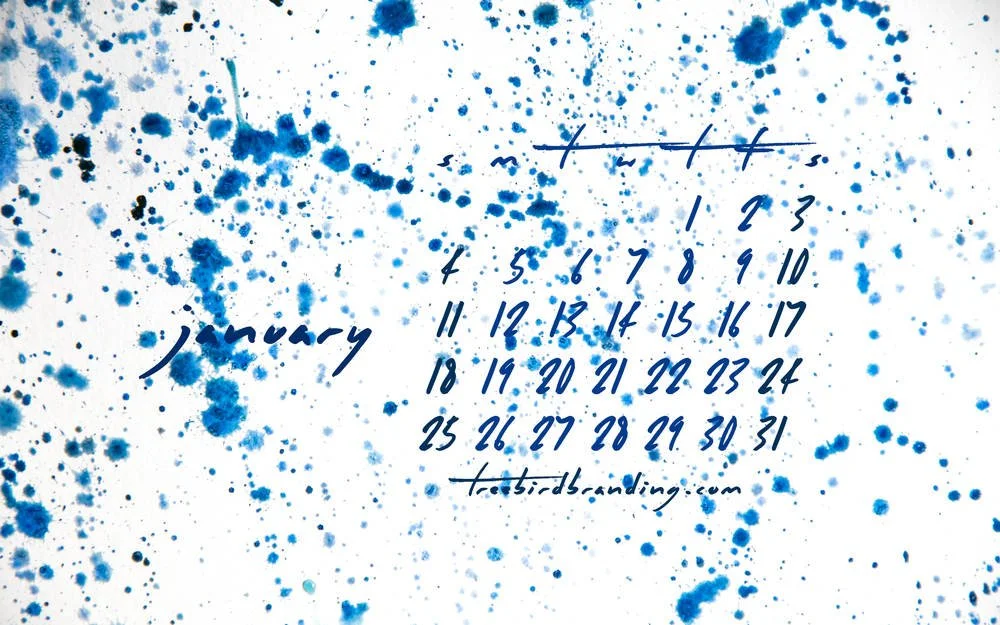 january
s m t w t f s
1 2 3
4 5 6 7 8 9 10
11 12 13 14 15 16 17
18 19 20 21 22 23 24
25 26 27 28 29 30 31
freebirdbranding.com